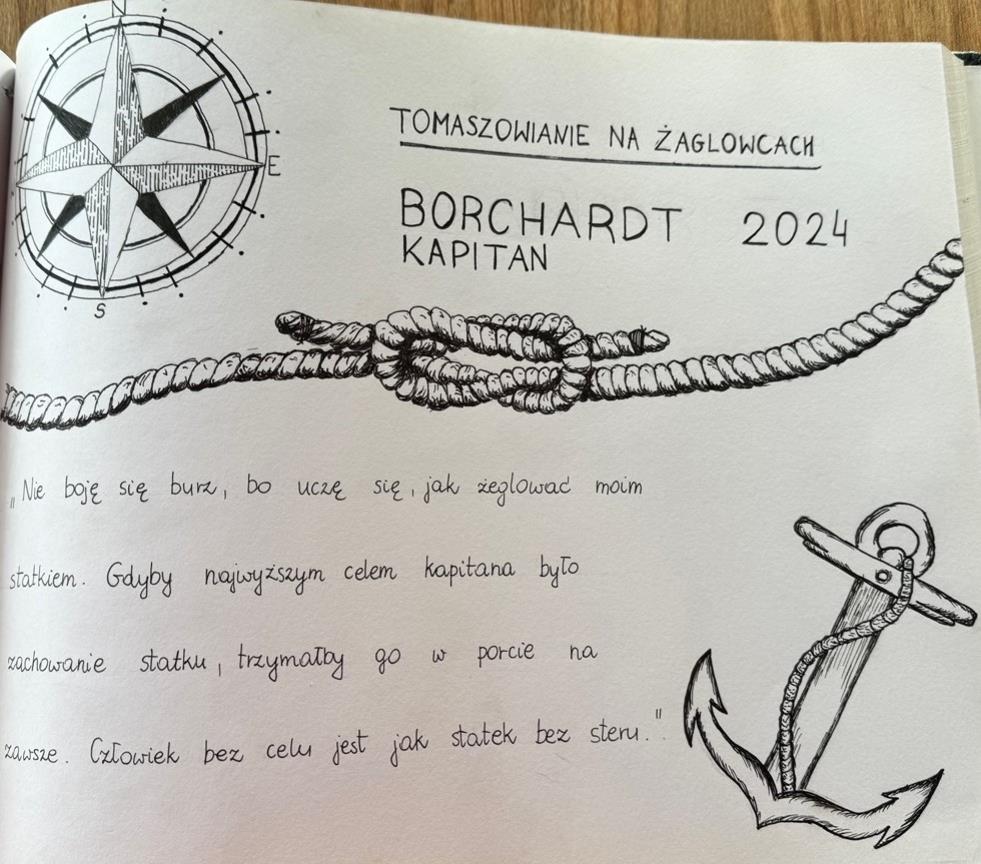 N
E
S
TOMASZOWIANIE NA ŻAGLOWCACH
BORCHARDT 2024
KAPITAN
„Nie boję się burz, bo uczę się, jak żeglować moim
statkiem. Gdyby najwyższym celem kapitana było
zachowanie statku, trzymałby go w porcie na
zawsze. Człowiek bez celu jest jak statek bez steru.".